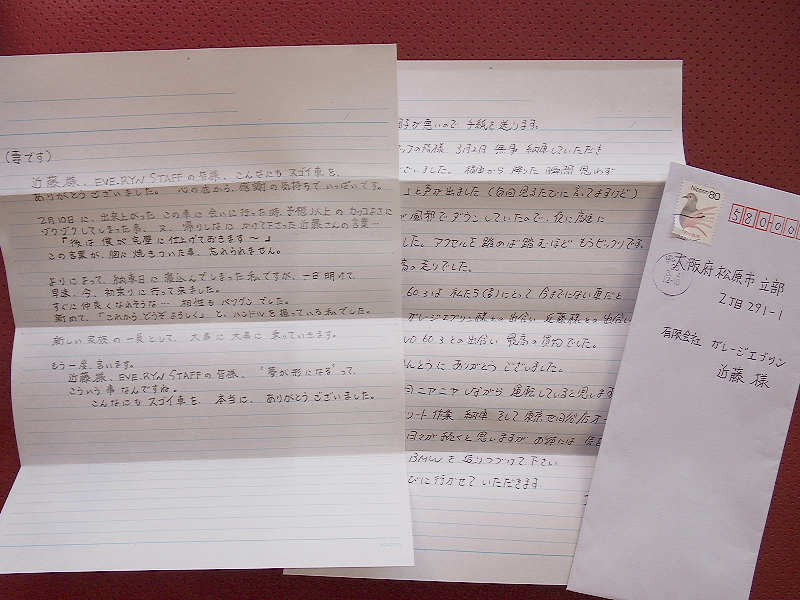 (妻です)
近藤様、EVE.RYN STAFFの皆様、こんなにも スゴイ車を、
ありがとうございました。 心の底から、感謝の気持ちで いっぱいです。
2月10日に、出来上がった この車に 会いに行った時、予想以上の カッコよさに
ゾクゾクしてしまった事、又、帰りしなに かけて下さった 近藤さんの言葉…
「後は 僕が 完璧に 仕上げておきます〜」
この言葉が、胸に 焼きついた事、忘れられません。
よりによって、納車日に 寝込んでしまった 私ですが、一日 明けて、
早速、今、初乗りに 行って 来ました。
すぐに 仲良くなれそうな… 相性も バツグン でした。
改めて、「これから どうぞ よろしく」と、ハンドルを 握っている 私でした。
新しい 家族の 一員として、 大事に 大事に 乗っていきます。
もう一度、言います。
近藤様、EVE.RYN STAFFの 皆様、“夢が形になる”って、
こういう 事 なんですね。
こんなにも スゴイ車を、本当に、ありがとう ございました。
子が悪いので 手紙を送ります。
皆様、3月2日 無事 納車していただき
ございました。 降りた 瞬間 思わず
」と声が出ました (毎回見るたびに 言ってますけど)
が 風邪で ダウンしていたので、夜に
した。アクセルを 踏めば 踏むほど もうビックリです。
の走りでした。
603は 私たち(妻)にとって 今までにない 車だと
ガレージエブリン様との出会い 近藤様との出会い
603との出会い 最高の 買物でした。
んとうに ありがとう ございました。
ニヤニヤ しながら 運転していると思います
作業 納車 そして 東京世田谷店オー
日々が 続くと思いますが お体には
BMWを 造りつづけて下さい
びに行かせて いただきます
NIPPON 80
58000
大阪府松原市立部
2丁目 291-1
有限会社 ガレージエブリン
近藤 様